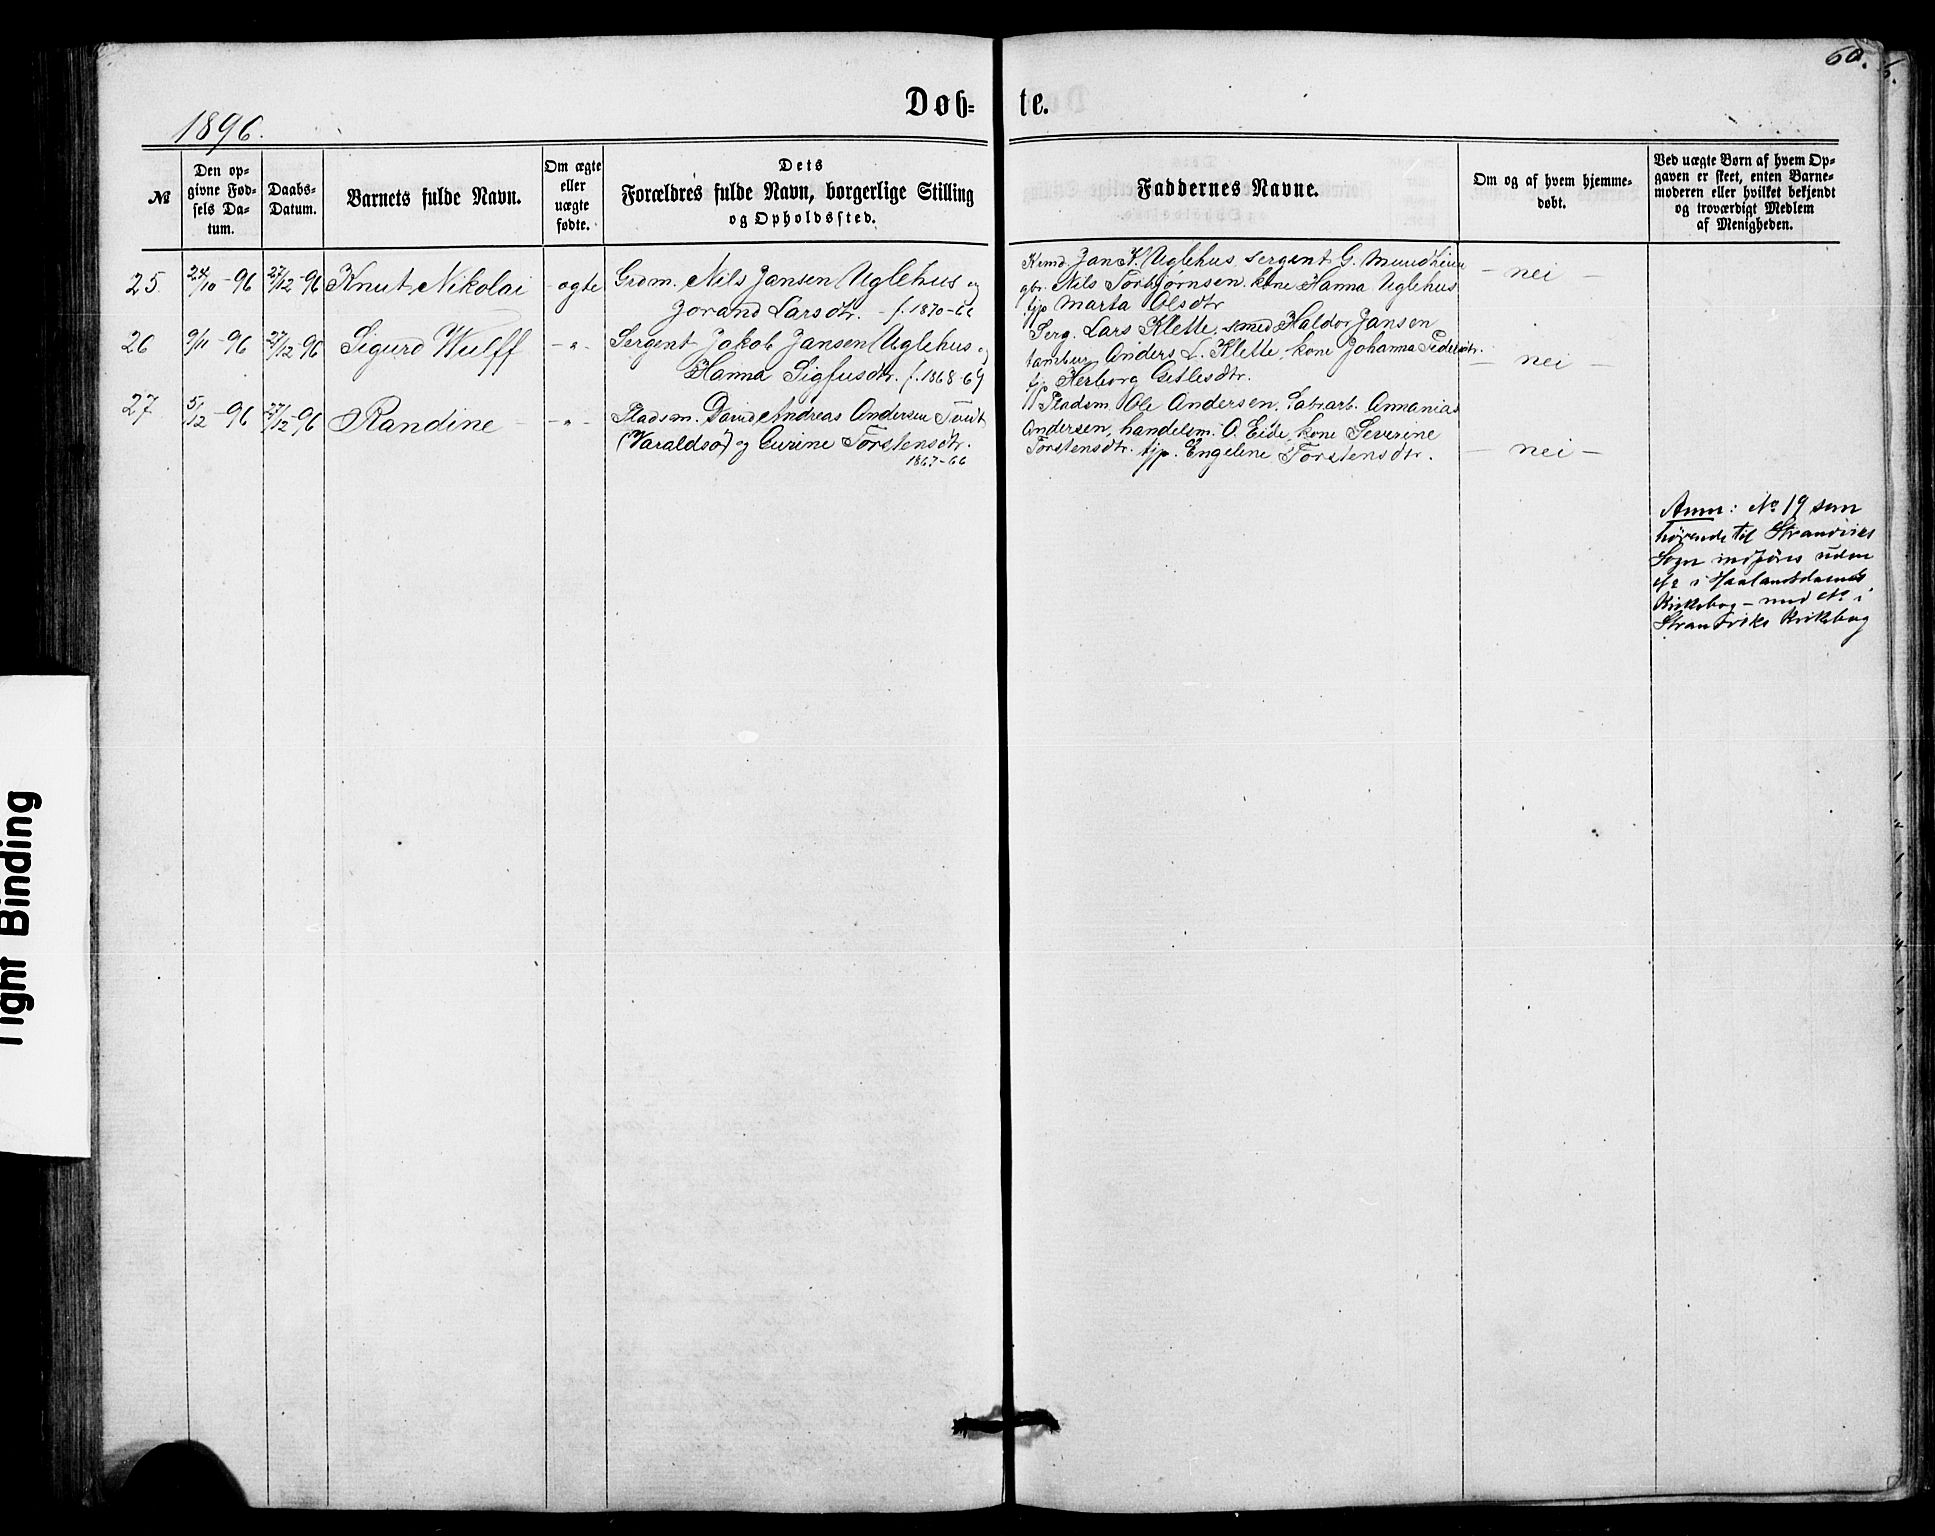 60.
Døb- te.
1896.
№
Den op-
givne Fød-
sels Da-
tum.
Daabs-
Datum.
Barnets fulde Navn.
Om ægte
eller
uægte
fødte.
Dets
Forældres fulde Navn, borgerlige Stilling
og Opholdssted.
Faddernes Navne.
Om og af hvem hjemme-
døbt.
Ved uægte Børn af hvem Op-
gaven er skeet, enten Barne-
moderen eller hvilket bekjendt
og troværdigt Medlem
af Menigheden.
25. 24/10-96 27/12-96 Knut Nikolai ægte
Grdm. Nils Jansen Uglehus og
Jorand Larsdtr. f. 1870-
Jan K. Uglehus sergent G. Mundheim
gbr. Nils Torbjørnsen, kone Hanna Uglehus
tjp Marta Olsdtr
- nei -
26 9/11-96 27/12-96 Sigurd Wulff - " -
Sergent Jakob Jansen Uglehus og
Hanna Sigfusdtr. f. 1868-69
Serg. Lars Klette, smed Haldor Jansen
tambur Anders L. Klette, kone Johanna Pedersdtr.
tjp Herborg Getlesdtr.
- nei -
27. 5/12-96 27/12-96 Randine - " -
Pladsm. David Andreas Andersen Tveit
(Varaldsø) og Gurine Torstensdtr.
1867-66
Pladsm. Ole Andersen, Fabrarb. Annanias
Andersen, handelsm. O. Eide, kone Severine
Torstensdtr. tjp. Engeline Torstensdtr.
- nei -
Anm: No 19 som
hørende til Strandviks
Sogn indføres uden
No i Haalandsdalens
Kirkebog - med No i
Strandviks Kirkebog
Tight Binding